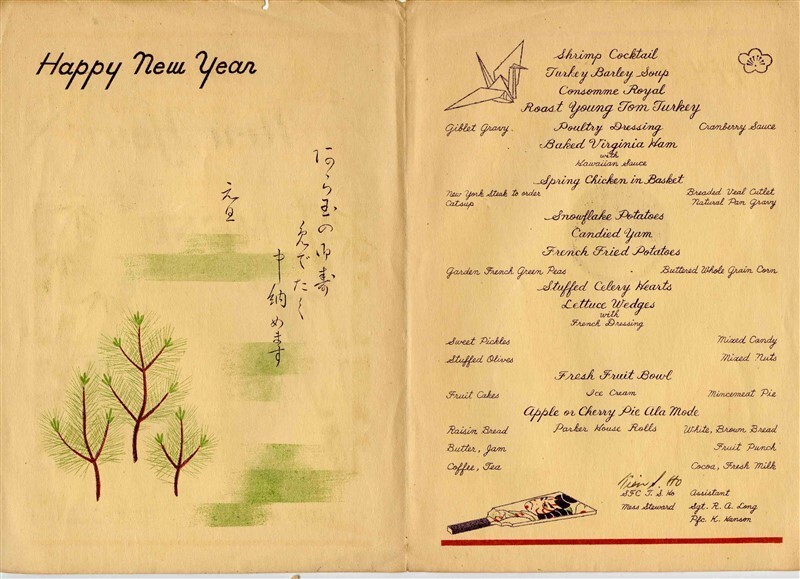 Happy New Year
あら玉の御寿
めでたく
申納めます
元旦
Shrimp Cocktail
Turkey Barley Soup
Consomme Royal
Roast Young Tom Turkey
Giblet Gravy Poultry Dressing Cranberry Sauce
Baked Virginia Ham
with
Hawaiian Sauce
Spring Chicken in Basket
New York Steak to order Breaded Veal Cutlet
Catsup Natural Pan Gravy
Snowflake Potatoes
Candied Yam
French Fried Potatoes
Garden French Green Peas Buttered Whole Grain Corn
Stuffed Celery Hearts
Lettuce Wedges
with
French Dressing
Sweet Pickles Mixed Candy
Stuffed Olives Mixed Nuts
Fresh Fruit Bowl
Fruit Cakes Ice Cream Mincemeat Pie
Apple or Cherry Pie Ala Mode
Raisin Bread Parker House Rolls White, Brown Bread
Butter, Jam Fruit Punch
Coffee, Tea Cocoa, Fresh Milk
S. Ho
SFC T. S. Ho Assistant
Mess Steward Sgt. R. A. Long
Pfc. K. Hanson